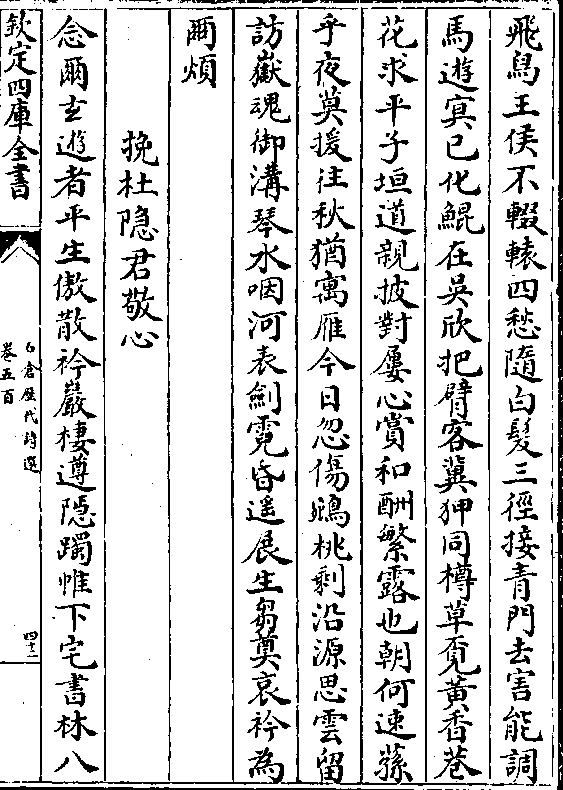 飛鳥王侯不輟轅四愁隨白髮三徑接青門去害能調
馬遊冥已化鯤在吳欣把臂客冀狎同樽草覓黃香巷
花求平子垣道親披對屢心賞和酬繁露也朝何速蓀
乎夜莫援往秋猶寓雁今日忽傷鵷桃剩沿源思雲留
訪嶽魂御溝琴水咽河表劍霓昏遥展生芻奠哀衿為
爾煩
挽杜隐君敬心
念爾玄遊者平生傲散衿巖棲遵隱躅惟下宅書林八
欽定四庫全書
石倉歷代詩選
卷五百
四十二